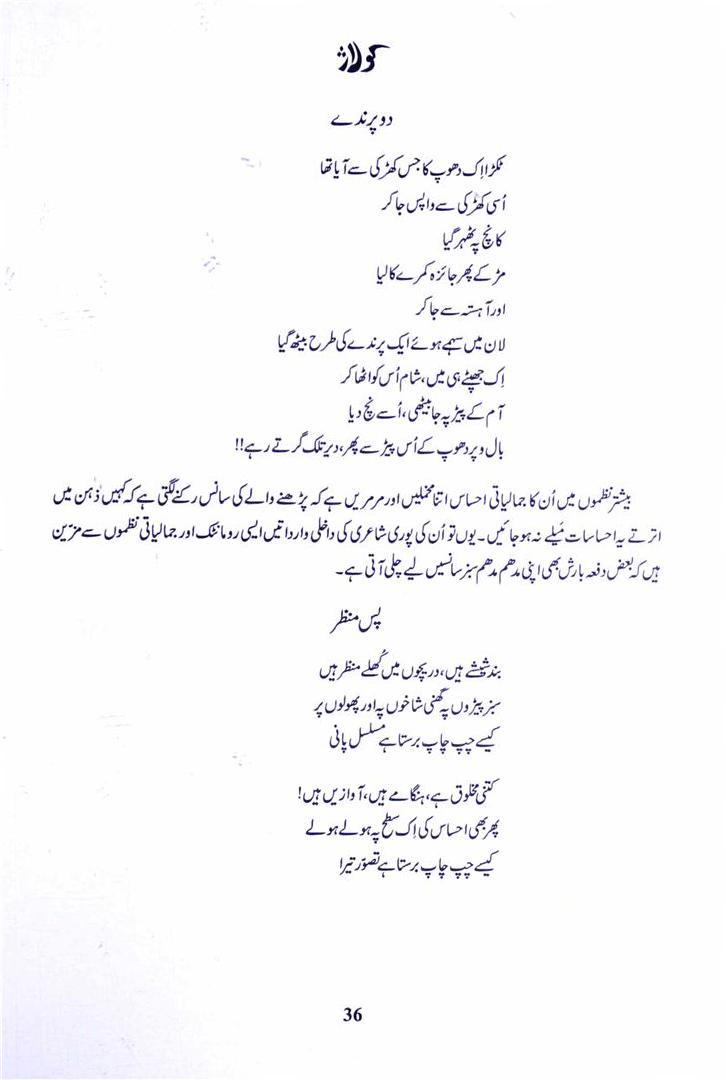 کولاژ
دو پرندے
ٹکڑا اِک دھوپ کا جس کھڑکی سے آیا تھا
اُسی کھڑکی سے واپس جا کر
کانچ پہ ٹھہر گیا
مڑ کے پھر جائزہ کمرے کا لیا
اور آہستہ سے جا کر
لان میں سہمے ہوئے ایک پرندے کی طرح بیٹھ گیا
اِک جھپٹے ہی میں، شام اُس کو اٹھا کر
آم کے پیڑ پہ جا بیٹھی، اُسے نچ دیا
بال و پر دھوپ کے اُس پیڑ سے پھر، دیر تلک گرتے رہے!!
بیشتر نظموں میں اُن کا جمالیاتی احساس اتنا مخملیں اور مرمریں ہے کہ پڑھنے والے کی سانس رکنے لگتی ہے کہ کہیں ذہن میں
اترتے یہ احساسات مَیلے نہ ہو جائیں۔ یوں تو اُن کی پوری شاعری کی داخلی وارداتیں ایسی رومانٹک اور جمالیاتی نظموں سے مزین
ہیں کہ بعض دفعہ بارش بھی اپنی مدھم مدھم سبز سانسیں لیے چلی آتی ہے۔
پس منظر
بند شیشے ہیں، دریچوں میں کُھلے منظر ہیں
سبز پیڑوں پہ گھنی شاخوں پہ اور پھولوں پر
کیسے چپ چاپ برستا ہے مسلسل پانی
کتنی مخلوق ہے، ہنگامے ہیں، آوازیں ہیں!
پھر بھی احساس کی اِک سطح پہ ہولے ہولے
کیسے چپ چاپ برستا ہے تصوّر تیرا
36